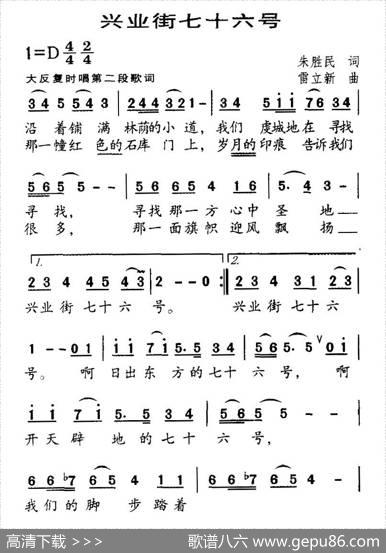 兴业街七十六号
1=D 4/4 2/4
大反复时唱第二段歌词
朱胜民 词
雷立新 曲
34 54 543 | 2 44 4 321 - | 34 5 1 i 76 34
沿着铺满 林荫的小道，我们 虔城地在寻找
那一幢红 色的石库门上，岁月的印痕 告诉我们
565 - - | 56 65 4 16 | 5. 4 3 -
寻找， 寻找那一方心中圣地
很多， 那一面旗帜迎风飘扬
1. 2.
2 3 4 45 43 | 2 - - 0 :| 2 3 4 31 23
兴业街七十六 号。 兴业街七十六
1 - - 0 i | i i 7 i 5. 5 34 | 5 6 5. 5 ∨ 0 i
号。 啊 日出东方的七十六号， 啊
i i 7 i 5. 5 34 | 5 65 - -
开天辟地的七十六号，
6 6 ♭7 65 4 | 6 6 ♭7 65 4
我们的脚步踏着
高清下载 >>>
歌谱八六 www.gepu86.com